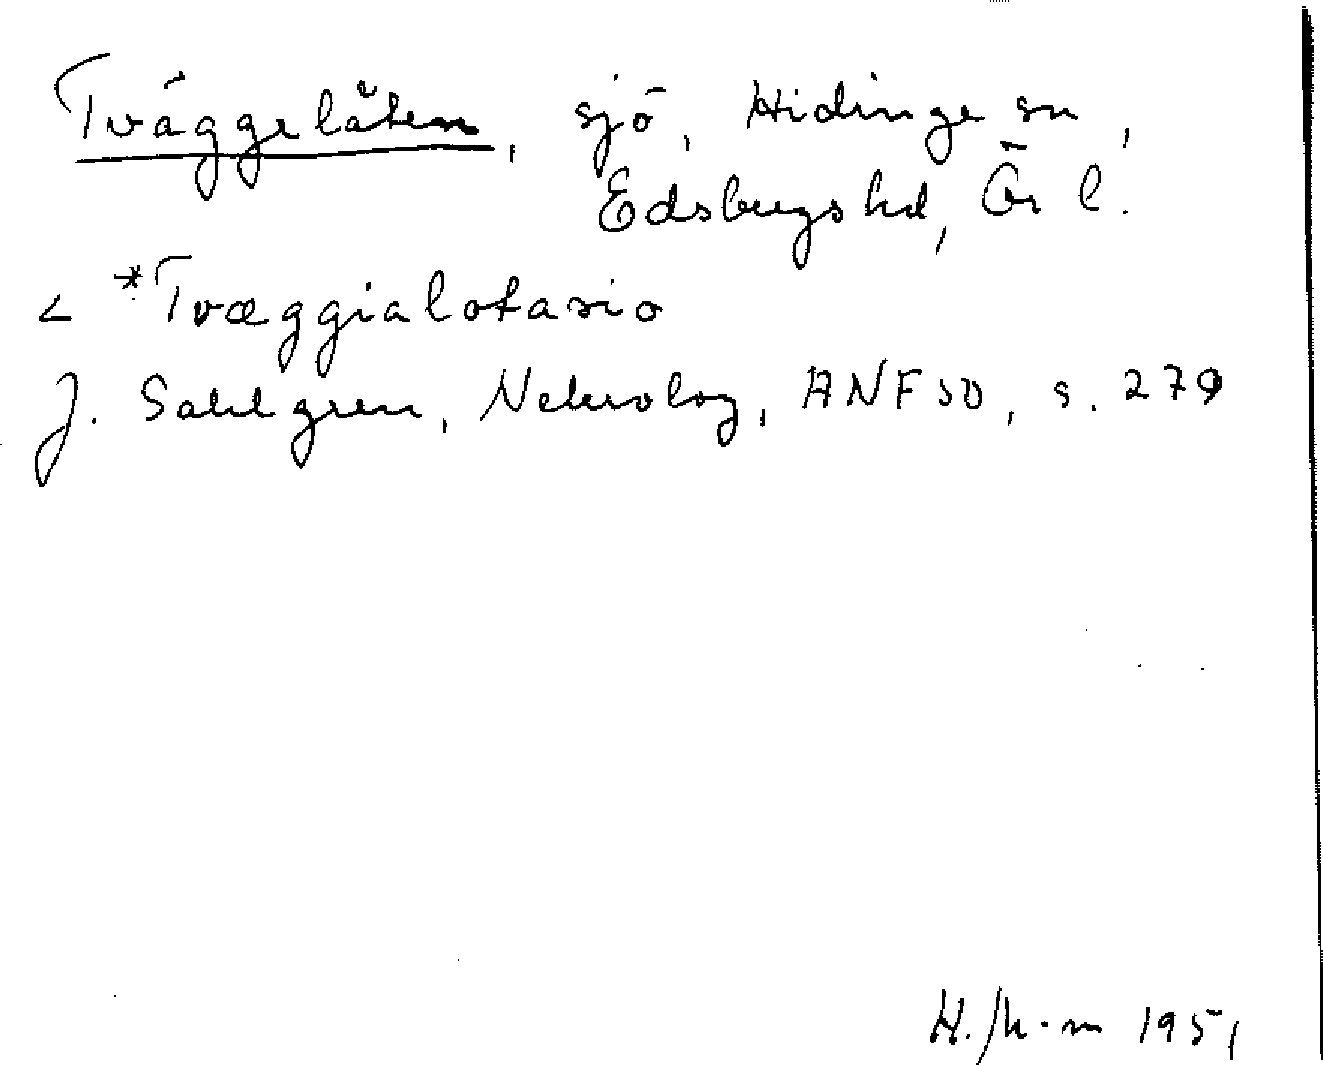 Tväggelåten, sjö, Hidinge sn,
Edsbergs hd, Ör l.
< *Tvæggialotasio
J. Sahlgren, Nekrolog, ANF 50, s. 279
1951